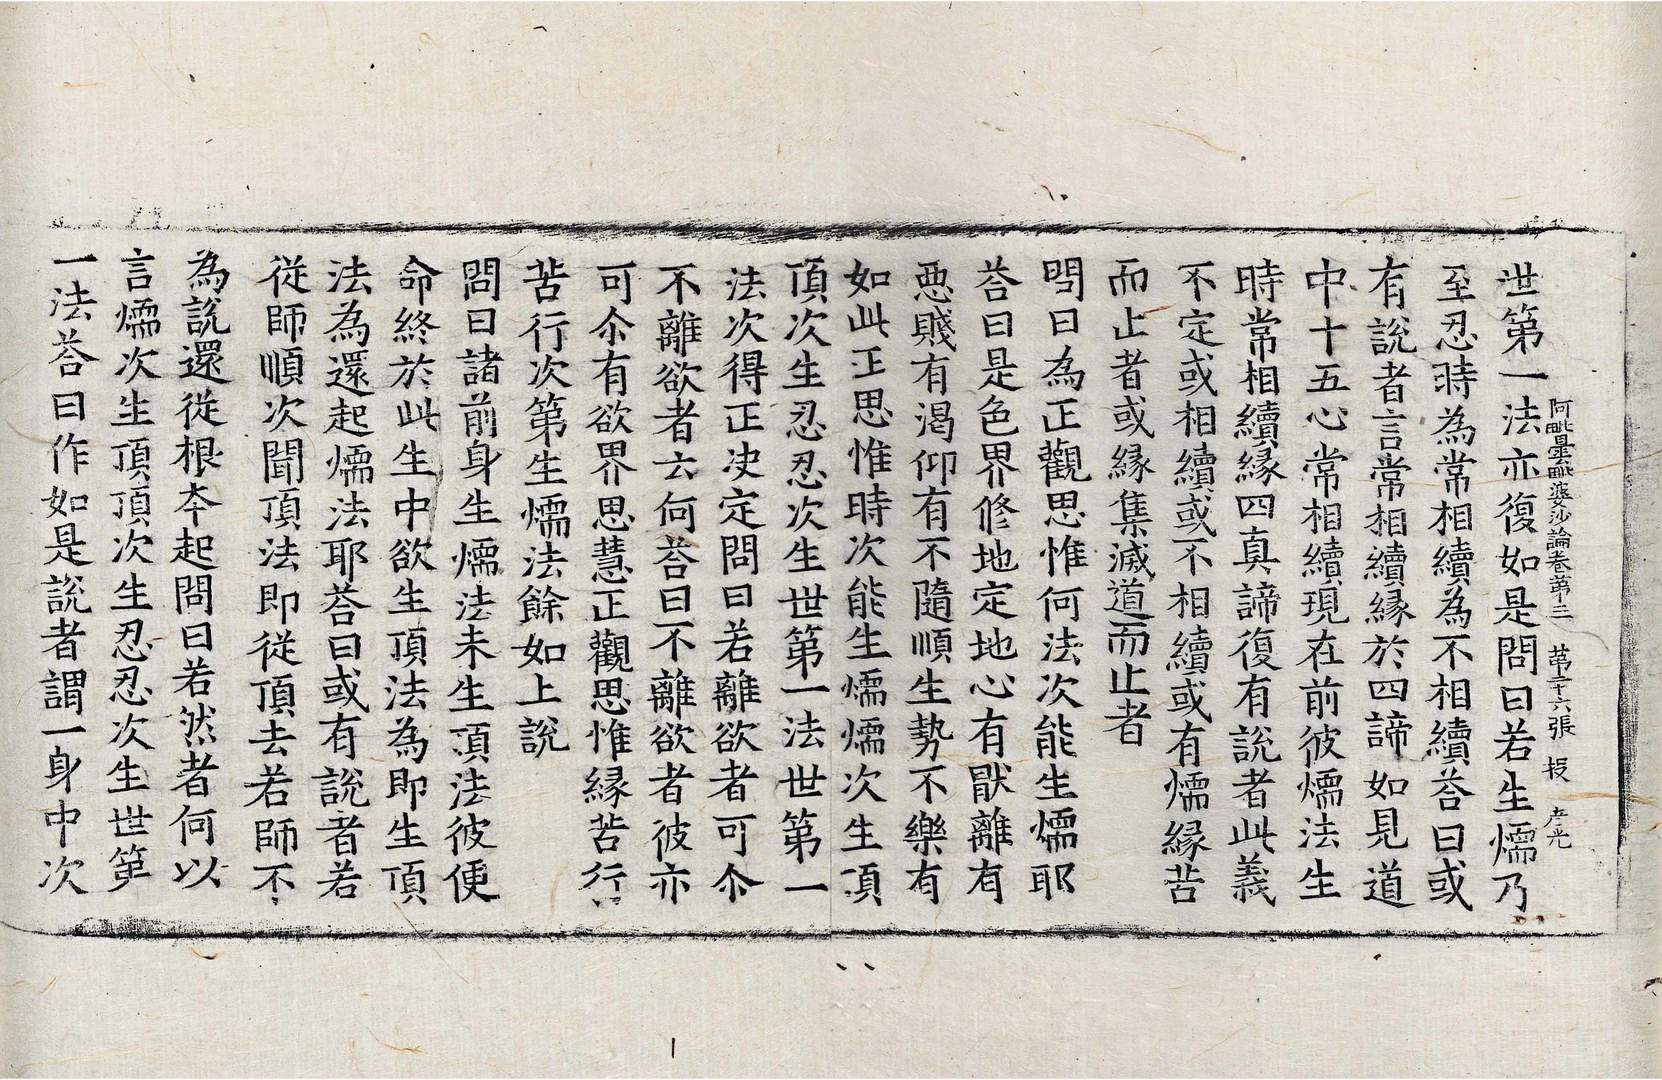 阿毗曇毗婆沙論卷第三　第二十六張　授　彥光
世第一法亦復如是問曰若生㬉乃
至忍時為常相續為不相續荅曰或
有說者言常相續緣於四諦如見道
中十五心常相續現在前彼㬉法生
時常相續緣四真諦復有說者此義
不定或相續或不相續或有㬉緣苦
而止者或緣集滅道而止者
問曰為正觀思惟何法次能生㬉耶
荅曰是色界修地定地心有猒離有
惡賤有渴仰有不隨順生勢不樂有
如此正思惟時次能生㬉㬉次生頂
頂次生忍忍次生世第一法世第一
法次得正決定問曰若離欲者可尒
不離欲者云何荅曰不離欲者彼亦
可尒有欲界思慧正觀思惟緣苦行
苦行次第生㬉法餘如上說
問曰諸前身生㬉法未生頂法彼便
命終於此生中欲生頂法為即生頂
法為還起㬉法耶荅曰或有說者若
從師順次聞頂法即從頂去若師不
為說還從根夲起問曰若然者何以
言㬉次生頂頂次生忍忍次生世第
一法荅曰作如是說者謂一身中次